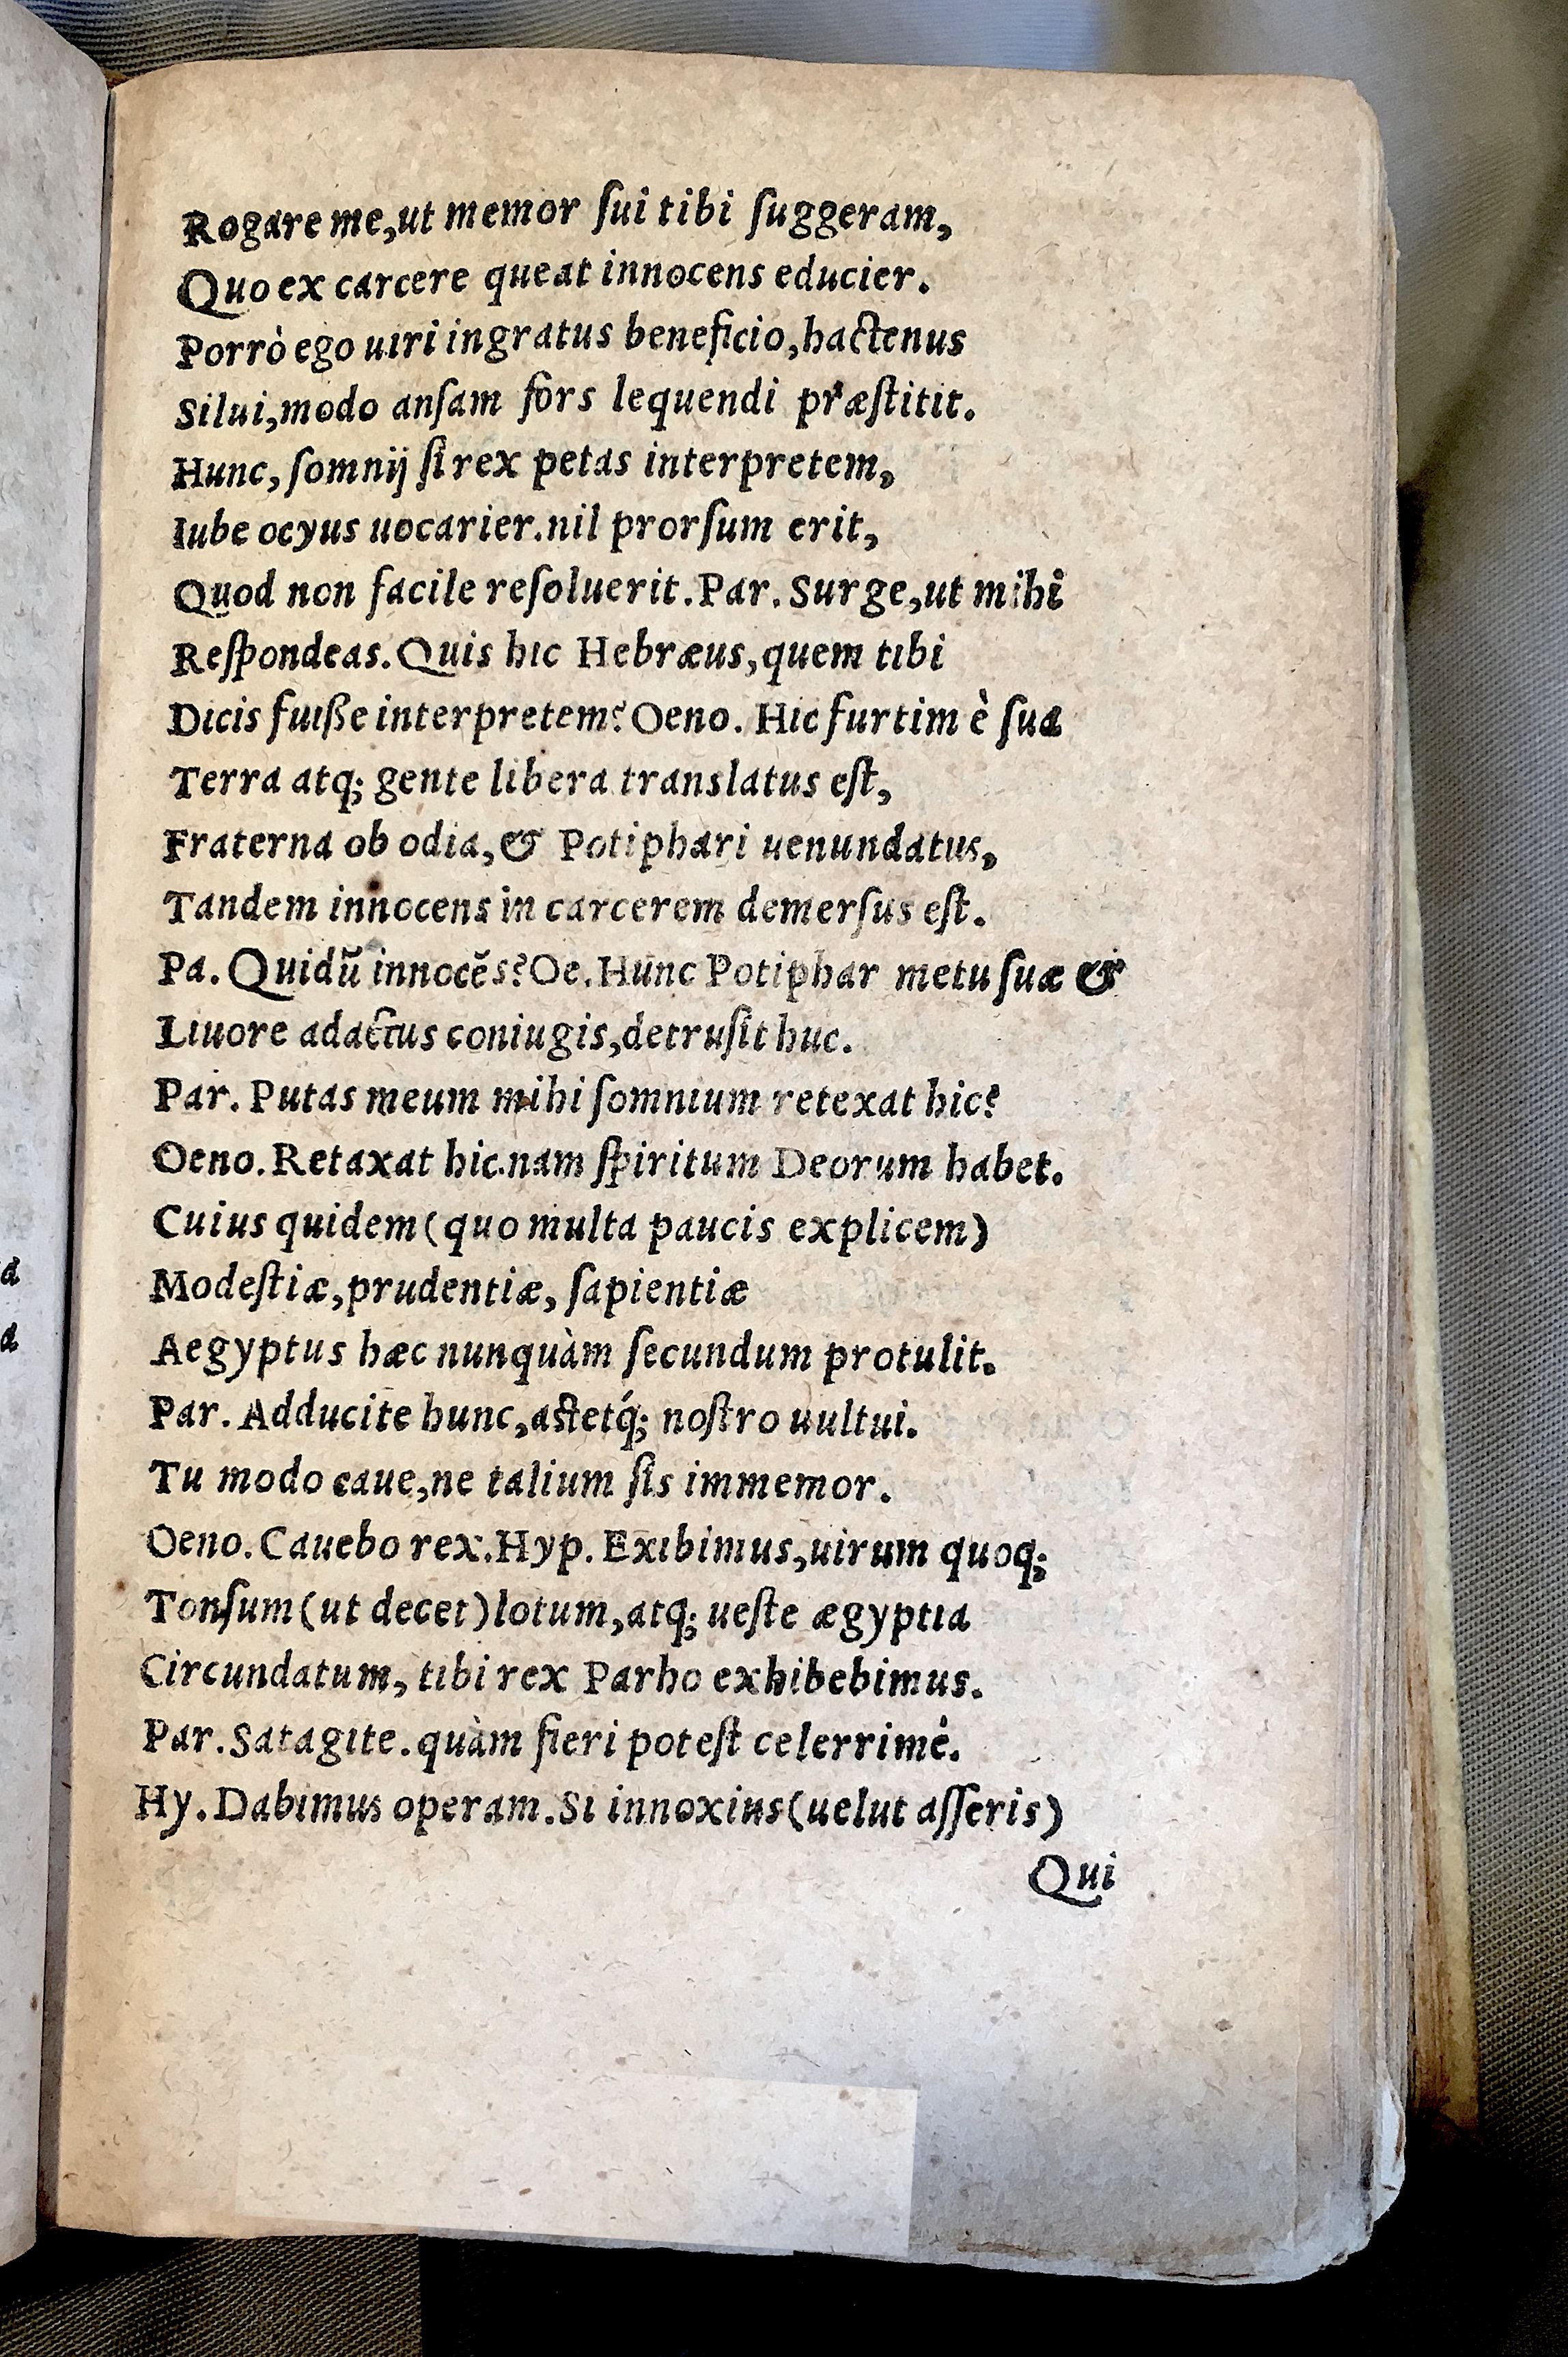 Rogare me,ut memor ſui tibi ſuggeram,
Quo ex carcere queat innocens educier.
Porrò ego uiri ingratus beneficio,hactenus
Silui,modo anſam fors lequendi præſtitit.
Hunc, ſomnij ſi rex petas interpretem,
Iube ocyus uocarier.nil prorſum erit,
Quod non facile reſoluerit.Par. Surge,ut mihi
Reſpondeas. Quis hic Hebræus,quem tibi
Dicis fuiſſe interpretem? Oeno. Hic furtim è ſua
Terra atq; gente libera translatus eſt,
Fraterna ob odia,& Potiphari uenundatus,
Tandem innocens in carcerem demerſus eſt.
Pa. Quidū innocẽs? Oe. Hunc Potiphar metu ſuæ &
Liuore adactus coniugis,detruſit huc.
Par. Putas meum mihi ſomnium retexat hic?
Oeno. Retaxat hic.nam ſpiritum Deorum habet.
Cuius quidem (quo multa paucis explicem)
Modeſtiæ,prudentiæ, ſapientiæ
Aegyptus hæc nunquàm ſecundum protulit.
Par. Adducite hunc,aſtetq́; noſtro uultui.
Tu modo caue,ne talium ſis immemor.
Oeno. Cauebo rex.Hyp. Exibimus,uirum quoq;
Tonſum (ut decet) lotum,atq; ueſte ægyptia
Circundatum, tibi rex Parho exhibebimus.
Par. Satagite.quàm fieri poteſt celerrimè.
Hy. Dabimus operam. Si innoxius (uelut aſſeris)
Qui